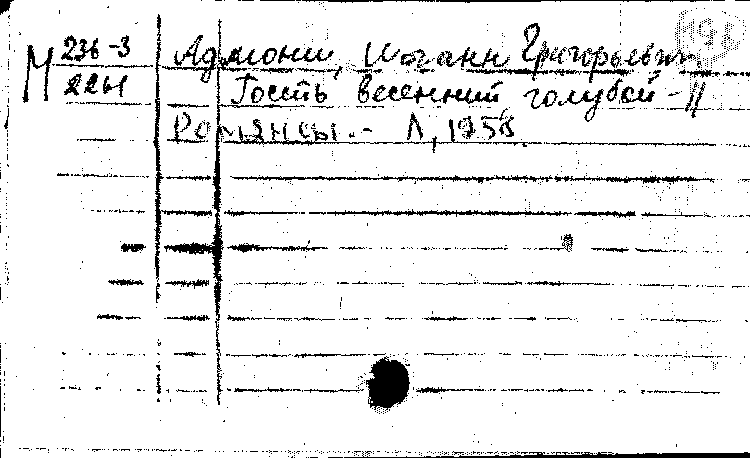 М 236-3 Адмони, Иоганн Григорьевич
2241 Гость весенний, голубой - //
Романсы. - Л, 1958.